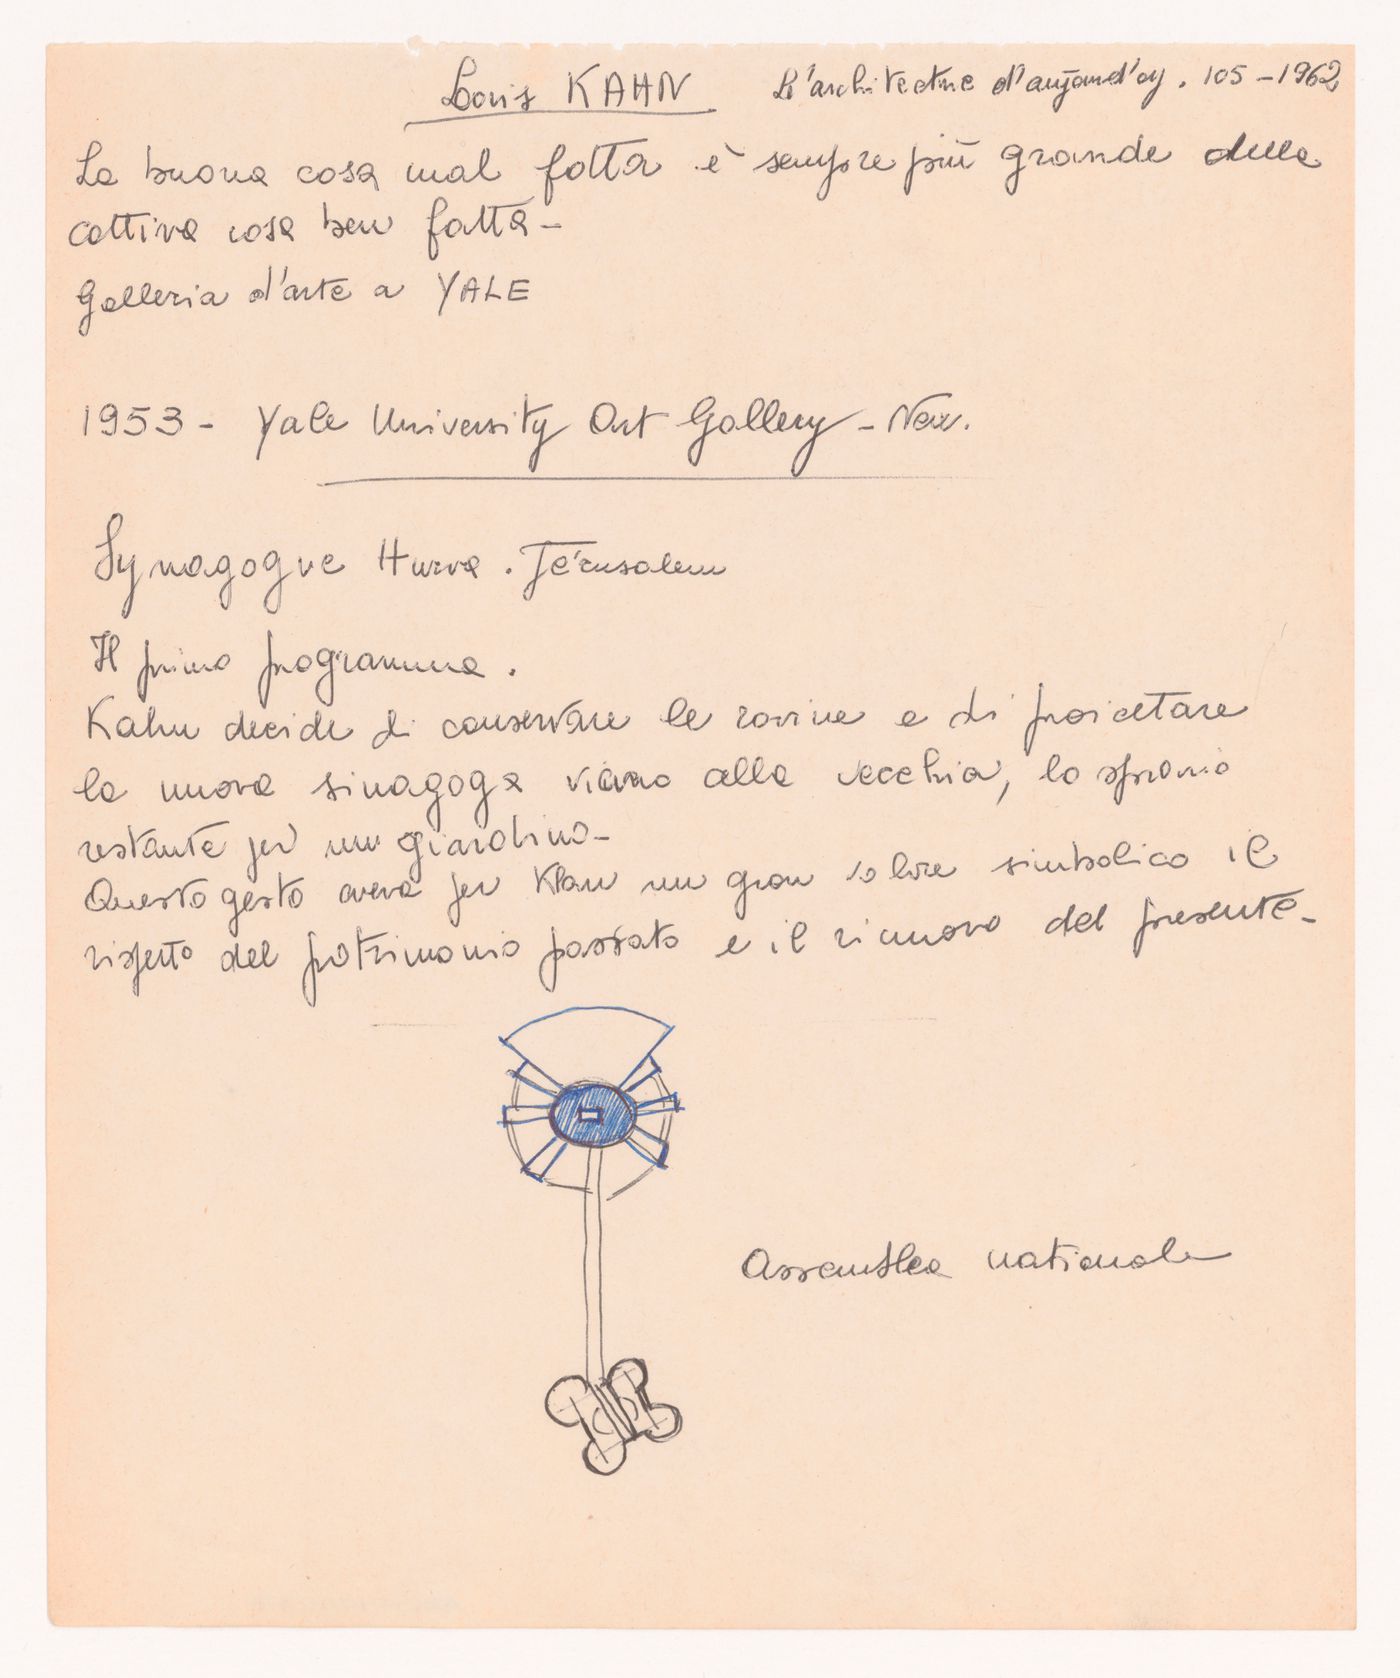 Louis KAHN L'architecture d'aujourd'oy. 105-1962
La buona cosa mal fatta è sempre più grande della
cattiva cosa ben fatta-
Galleria d'arte a YALE
1953- Yale University Art Gallery - New.
Synagogue Hurva. Jérusalem
Il primo programma.
Kahn decide di conservare le rovine e di proiettare
la nuova sinagoga vicino alla vecchia, lo spazio
restante per un giardino-
Questo gesto aveva per Khan un gran valore simbolico il
rispetto del patrimonio passato e il rinnovo del presente-
Assemblea nationale